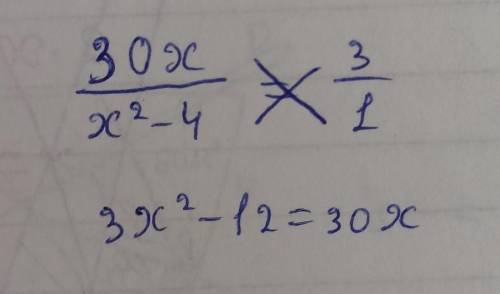 30x/(x²-4) = 3/1
3x²-12=30x